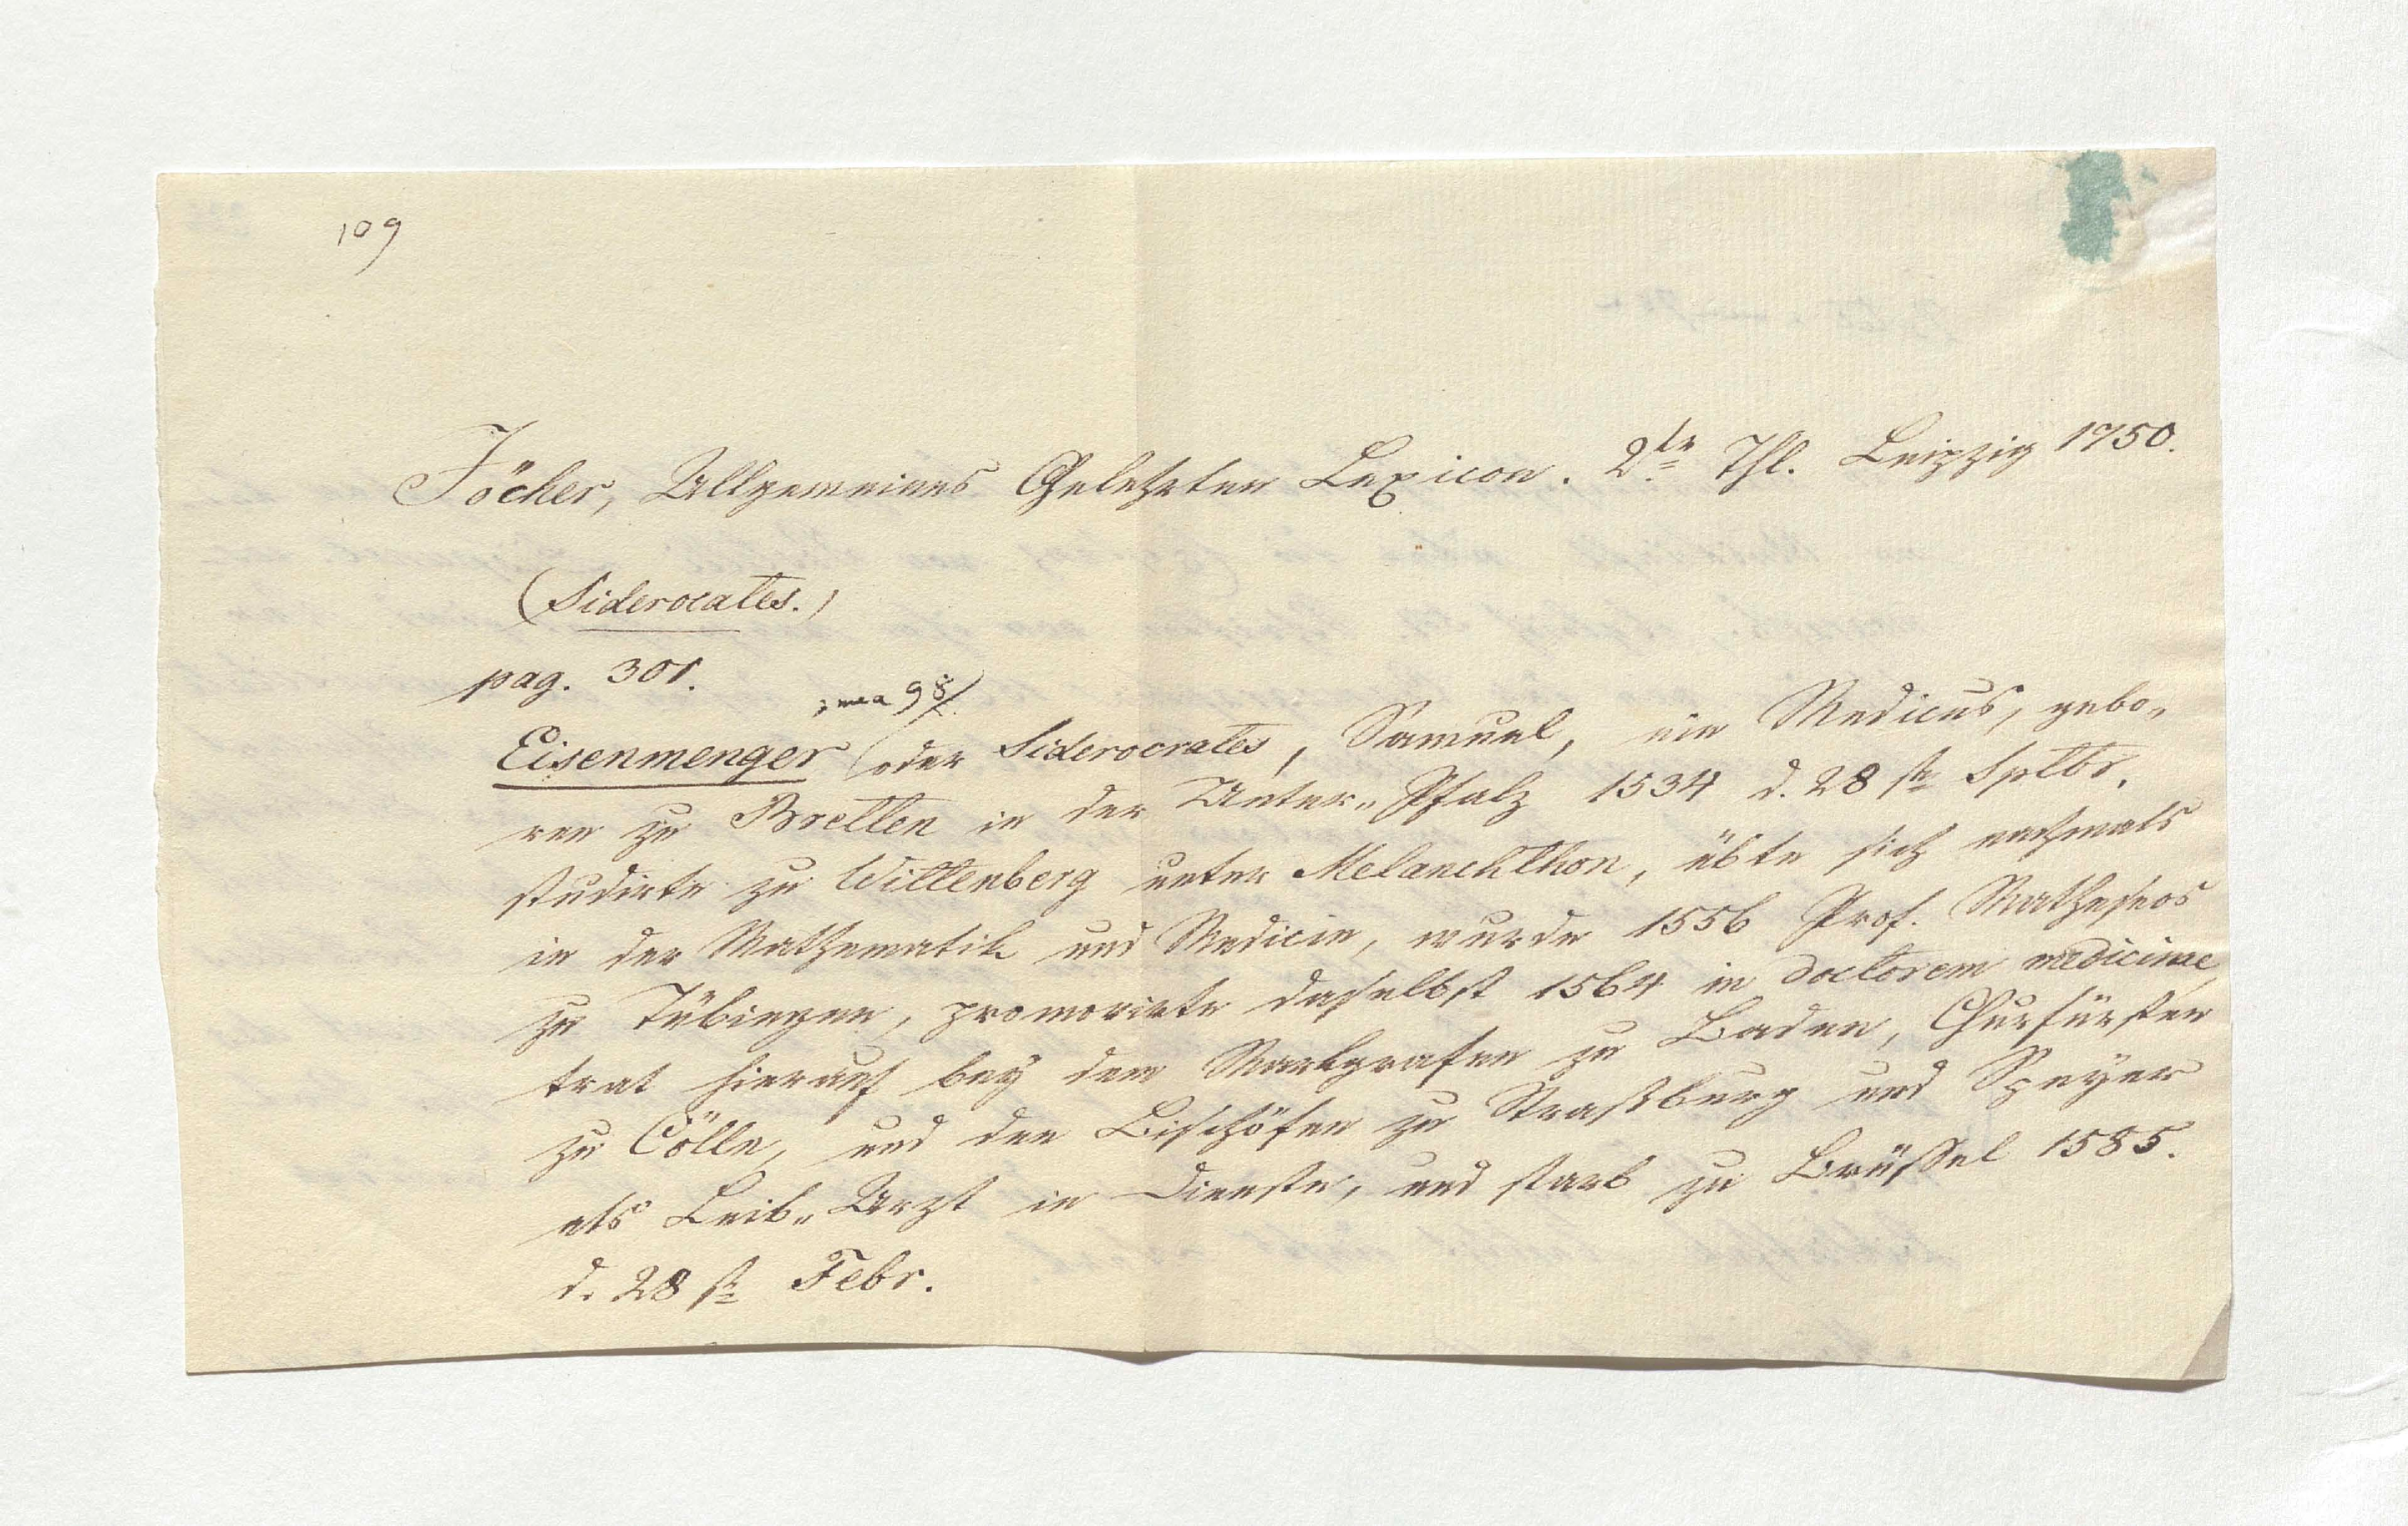 109
Jöcher, Allgemeines Gelehrten Lexicon. 2te Thl. Leipzig 1750.
(Siderocates.)
pag. 301.
98/.
Eisenmenger (oder Siderocrates, Samuel, ein Medicus, gebo„
ren zu Bretten in der Unter„ Pfalz 1534 d. 28 st Sptbr.
studirte zu Wittenberg unter Melanchthon, übte sich nachmals
in der Mathematik und Medicin, wurde 1556 Prof. Matheseos
zu Tübingen, promovirte daselbst 1564 in doctorem medicinae,
trat hierauf bey dem Markgrafen zu Baden, Churfürsten
zu Cölln, und den Bischöfen zu Straßburg und Speyer
als Leib„ Arzt in Dienste, und starb zu Brüssel 1585.
d. 28 st Febr.